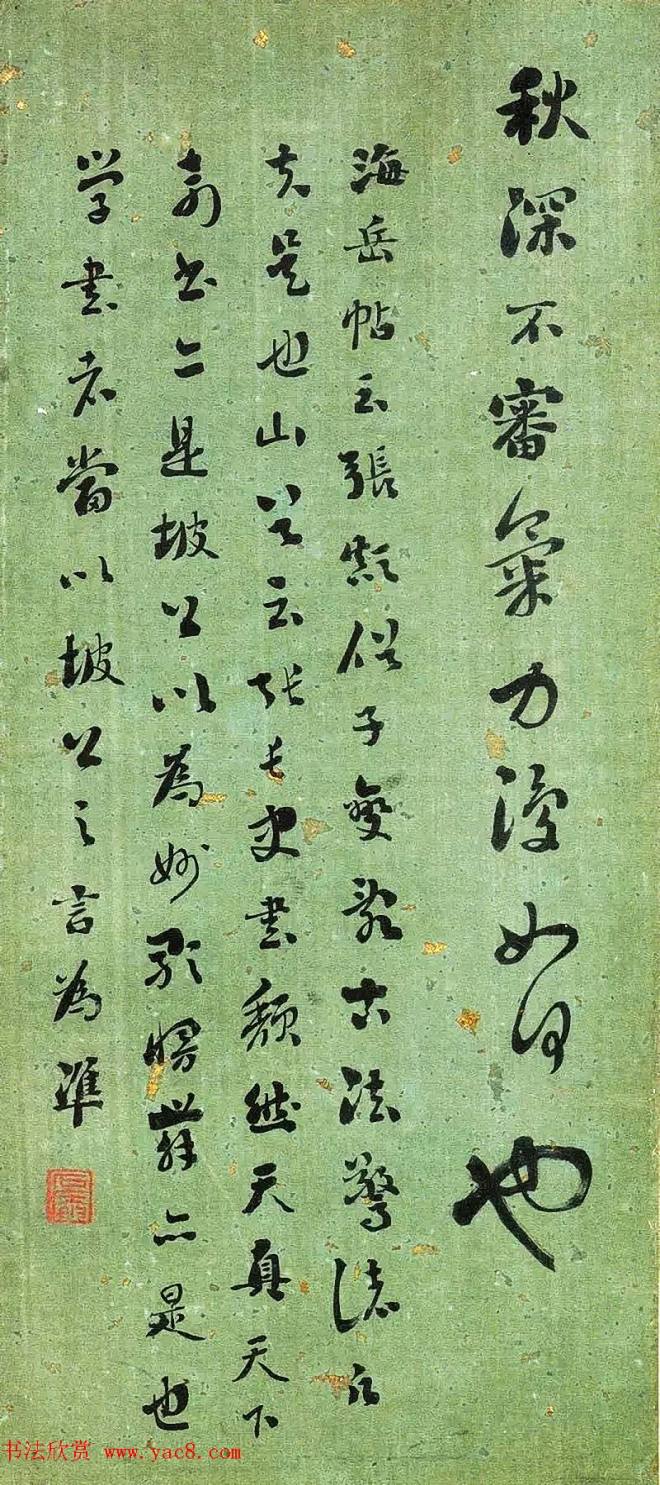 秋深不審氣力復如何也
海岳帖云張顛俗子變亂古法驚諸凡
夫是也山谷云張長史書頹然天真天下
是坡公以為妙亦是也
学書者當以坡公之言為準
书法欣赏 www.yac8.com